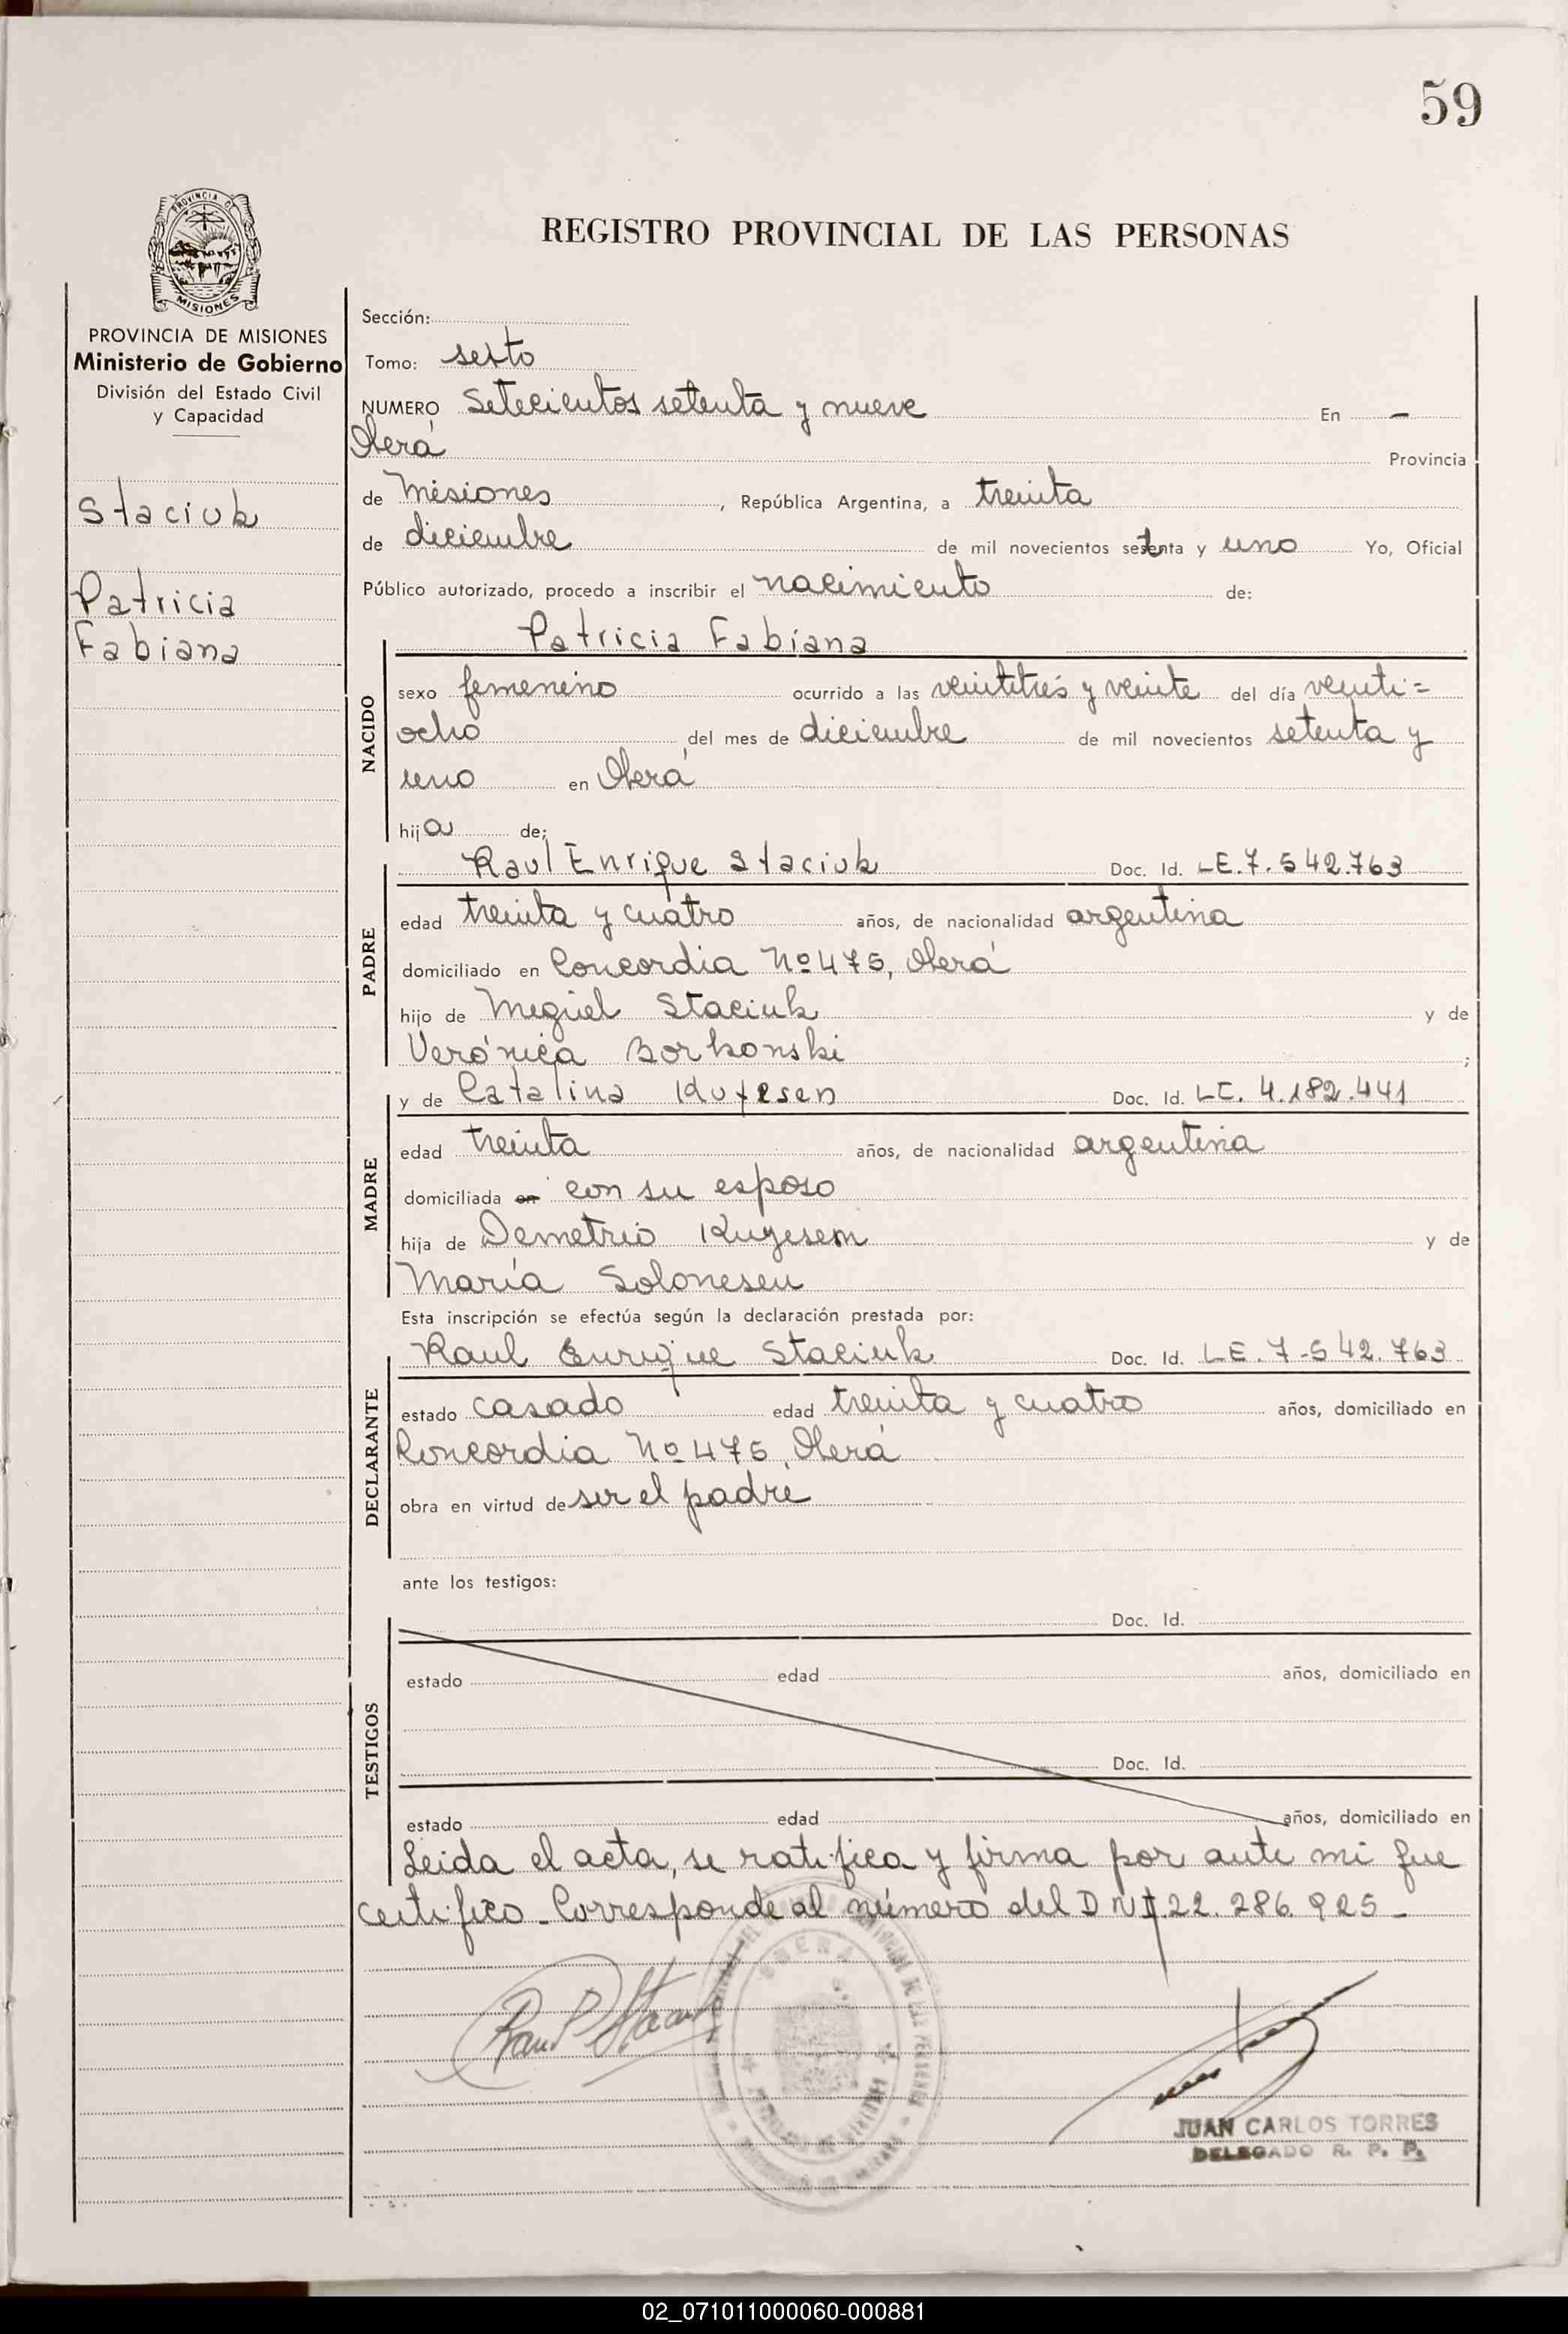 59
PROVINCIA DE
MISIONES
REGISTRO PROVINCIAL DE LAS PERSONAS
PROVINCIA DE MISIONES
Ministerio de Gobierno
División del Estado Civil
y Capacidad
Staciuk
Patricia
Fabiana
Sección:
Tomo: sexto
NUMERO Setecientos setenta y nueve En —
Oberá Provincia
de Misiones, República Argentina, a treinta
de diciembre de mil novecientos setenta y uno Yo, Oficial
Público autorizado, procedo a inscribir el nacimiento de:
Patricia Fabiana
NACIDO
sexo femenino ocurrido a las veintitrés y veinte del día veinti=
ocho del mes de diciembre de mil novecientos setenta y
uno en Oberá
hija de;
Raul Enrique Staciuk Doc. Id. LE.7.542.763
PADRE
edad treinta y cuatro años, de nacionalidad argentina
domiciliado en Concordia Nº 475, Oberá
hijo de Miguel Staciuk y de
Verónica Borkonski;
y de Catalina Doc. Id. LC. 4.182.441
MADRE
edad treinta años, de nacionalidad argentina
domiciliada en con su esposo
hija de Demetrio y de
María
Esta inscripción se efectúa según la declaración prestada por:
Raul Enrique Staciuk Doc. Id. LE.7-542.763
DECLARANTE
estado casado edad treinta y cuatro años, domiciliado en
Concordia Nº 475, Oberá
obra en virtud de ser el padre
ante los testigos:
Doc. Id.
TESTIGOS
estado edad años, domiciliado en
Doc. Id.
estado edad años, domiciliado en
Leida el acta, se ratifica y firma por ante mi que
certifico - Corresponde al número del DNI.22.286.925 -
OBERA
JUAN CARLOS TORRES
DELEGADO R. P. P.
02_071011000060-000881